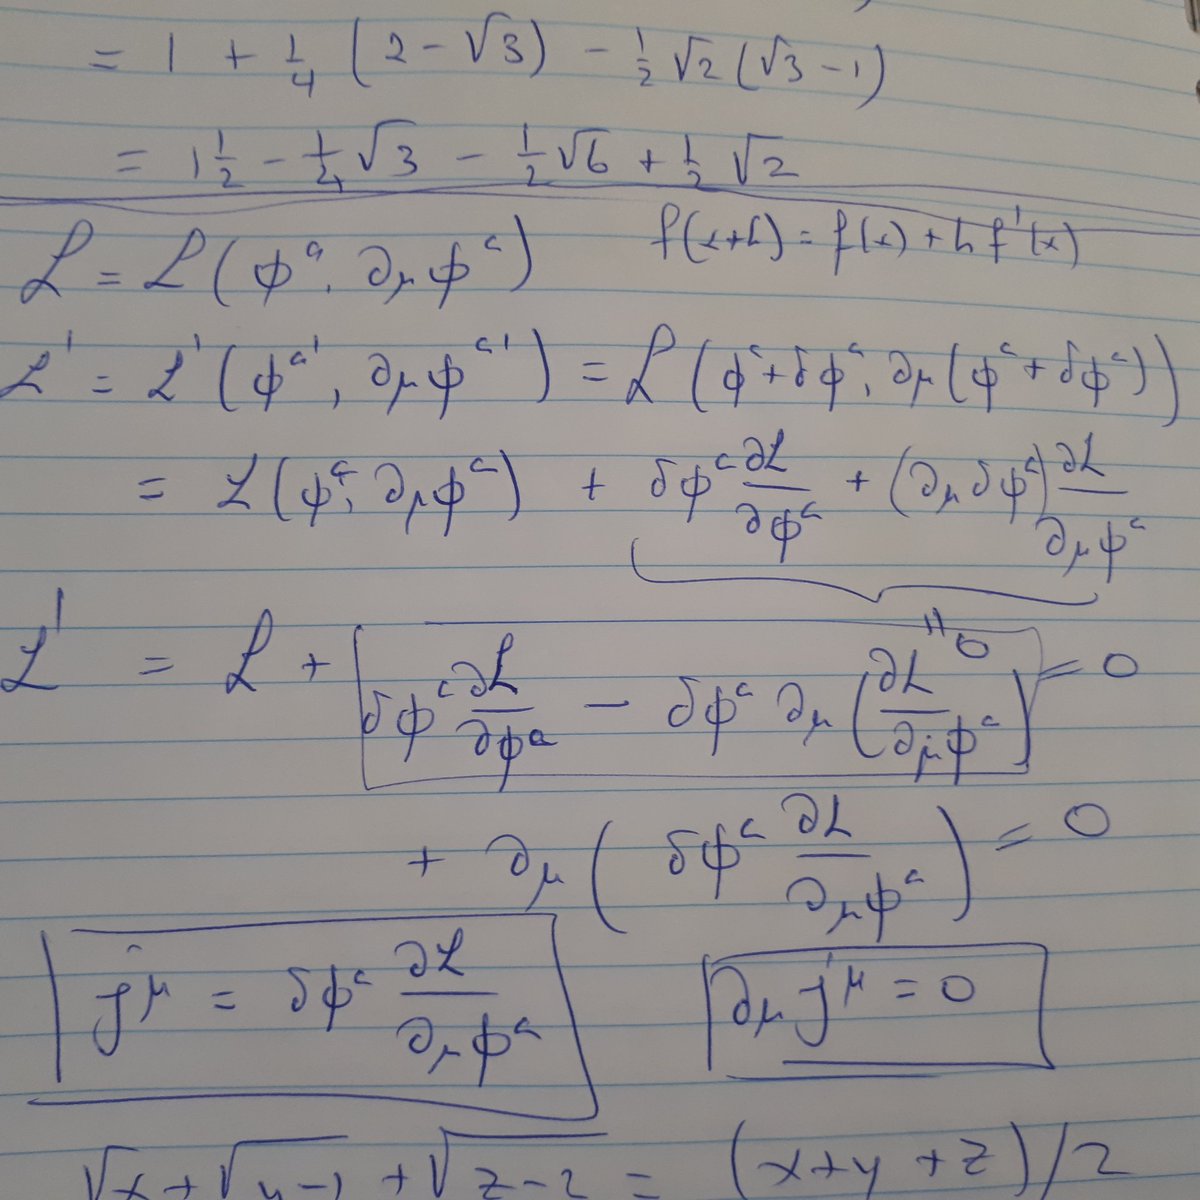 = 1 + 1/4 (2 - √3) - 1/2 √2 (√3 - 1)
= 1 1/2 - 1/4 √3 - 1/2 √6 + 1/2 √2
ℒ = ℒ(φᵃ, ∂μφᵃ) f(x+h) = f(x) + h f'(x)
ℒ' = ℒ'(φᵃ', ∂μφᵃ') = ℒ(φᵃ + δφᵃ, ∂μ(φᵃ + δφᵃ))
= ℒ(φᵃ, ∂μφᵃ) + δφᵃ ∂ℒ/∂φᵃ + (∂μ δφᵃ) ∂ℒ/∂μφᵃ
= 0
ℒ' = ℒ + δφᵃ ∂ℒ/∂φᵃ - δφᵃ ∂μ(∂ℒ/∂μφᵃ) = 0
+ ∂μ(δφᵃ ∂ℒ/∂μφᵃ) = 0
j^μ = δφᵃ ∂ℒ/∂μφᵃ ∂μ j^μ = 0
√x + √y-1 + √z-2 = (x+y+z)/2